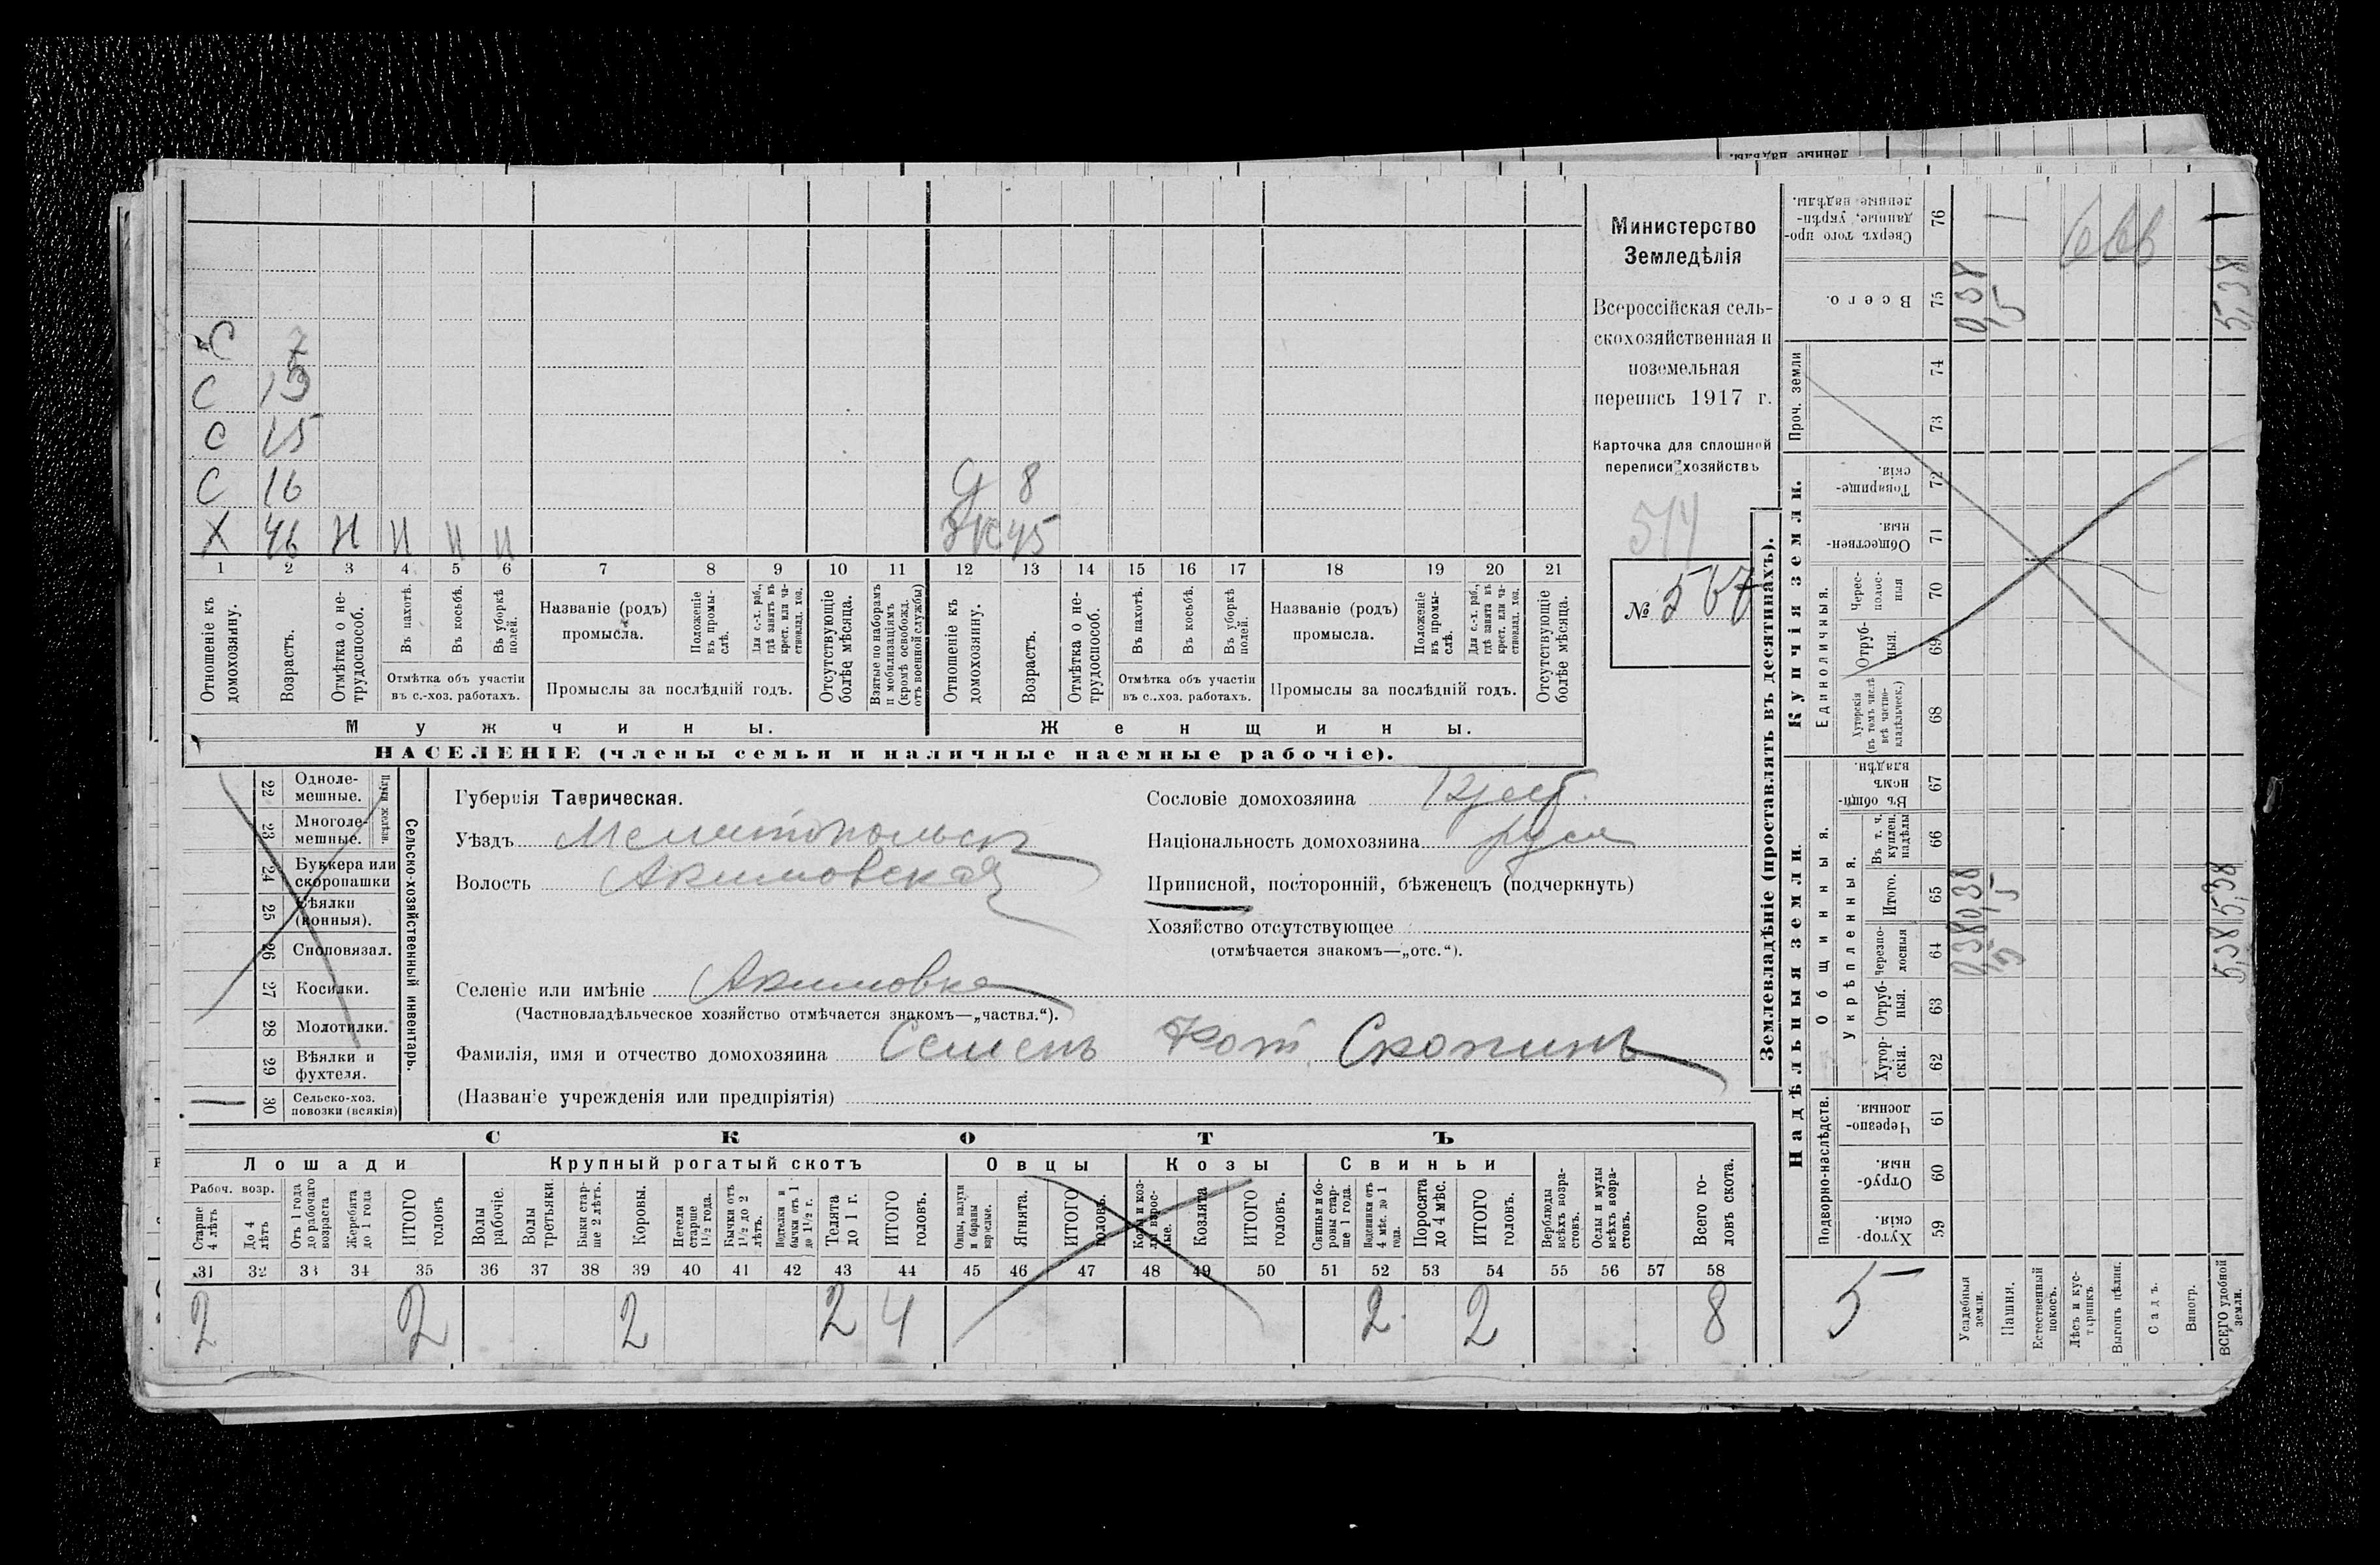 С 7
С 13
С 15
С 16 Д 8
Х 46 Н Н Н Н Ж 45
1 2 3 4 5 6 7 8 9 10 11 12 13 14 15 16 17 18 19 20 21
Отношеніе къ домохозяину.
Возрастъ.
Отмѣтка о нетрудоспособ.
Въ пахотѣ.
Въ косьбѣ.
Въ уборкѣ полей.
Отмѣтка объ участіи въ с.-хоз. работахъ.
Названіе (родъ) промысла.
Положеніе въ промыслѣ.
Для с.-х. раб., гдѣ занятъ въ крест. или частновлад. хоз.
Промыслы за послѣдній годъ.
Отсутствующіе болѣе мѣсяца.
Взятые по наборамъ и мобилизаціямъ (кромѣ освобожд. отъ военной службы)
Отношеніе къ домохозяину.
Возрастъ.
Отмѣтка о нетрудоспособ.
Въ пахотѣ.
Въ косьбѣ.
Въ уборкѣ полей.
Отмѣтка объ участіи въ с.-хоз. работахъ.
Названіе (родъ) промысла.
Положеніе въ промыслѣ.
Для с.-х. раб., гдѣ занята въ крест. или частновлад. хоз.
Промыслы за послѣдній годъ.
Отсутствующіе болѣе мѣсяца.
Мужчины. Женщины.
НАСЕЛЕНІЕ (члены семьи и наличные наемные рабочіе).
Министерство
Земледѣлія
Всероссійская сель-
скохозяйственная и
поземельная
перепись 1917 г.
Карточка для сплошной
переписи хозяйствъ
514
№ 567
22 Одноле-
мешные.
23 Многоле-
мешные.
Плуги желѣзн.
24 Буккера или
скоропашки
25 Сѣялки
(конныя).
26 Сноповязал.
27 Косилки.
28 Молотилки.
29 Вѣялки и
фухтеля.
30 Сельско-хоз.
повозки (всякія)
Сельско-хозяйственный инвентарь.
Губернія Таврическая.
Уѣздъ Мелитопольск
Волость Акимовская
Селеніе или имѣніе Акимовка
(Частновладѣльческое хозяйство отмѣчается знакомъ—„частвл.“).
Фамилія, имя и отчество домохозяина Семенъ Скопинъ
(Названіе учрежденія или предпріятія)
Сословіе домохозяина
Національность домохозяина русск
Приписной, посторонній, бѣженецъ (подчеркнуть)
Хозяйство отсутствующее
(отмѣчается знакомъ—„отс.“).
СКОТЪ
Лошади Крупный рогатый скотъ Овцы Козы Свиньи
Рабоч. возр.
Старше 4 лѣтъ
До 4 лѣтъ
Отъ 1 года до рабочаго возраста
Жеребята до 1 года
ИТОГО головъ
Волы рабочіе.
Волы третьяки.
Быки старше 2 лѣтъ.
Коровы.
Нетели старше 1½ года.
Бычки отъ 1½ до 2 лѣтъ.
Подтелки и бычки отъ 1 до 1½ г.
Телята до 1 г.
ИТОГО головъ.
Овцы, валухи и бараны взрослые.
Ягнята.
ИТОГО головъ.
Козы и козлы взрослые.
Козлята
ИТОГО головъ.
Свиньи и боровы старше 1 года.
Подсвинки отъ 4 мѣс. до 1 года.
Поросята до 4 мѣс.
ИТОГО головъ.
Верблюды всѣхъ возрастовъ.
Ослы и мулы всѣхъ возрастовъ.
Всего головъ скота.
31 32 33 34 35 36 37 38 39 40 41 42 43 44 45 46 47 48 49 50 51 52 53 54 55 56 57 58
2 2 2 2 4 2 2 8
Землевладѣніе (проставлять въ десятинахъ).
Надѣльныя земли. Купчія земли. Проч. земли
Подворно-наслѣдств.
Общинныя.
Укрѣпленныя.
Единоличныя.
Хуторскія. 59
Отрубныя. 60
Черезполосныя. 61
Хуторскія. 62
Отрубныя. 63
Черезполосныя 64
Итого. 65
Въ т. ч. куплен. надѣлы 66
Въ общинномъ владѣн. 67
Хуторскія (въ томъ числѣ всѣ частновладѣльческ.) 68
Отрубныя. 69
Чересполосныя 70
Общественныя. 71
Товарищескія. 72
73
74
Всего. 75
Сверхъ того проданные, укрѣпленные надѣлы. 76
5
Усадебныя земли. 0,38 0,38 0,38
Пашня. 5 5 5
Естественный покосъ.
Лѣсъ и кустарникъ.
Выгонъ цѣлин.
Садъ.
Виногр.
ВСЕГО удобной земли. 5,38 5,38 5,38